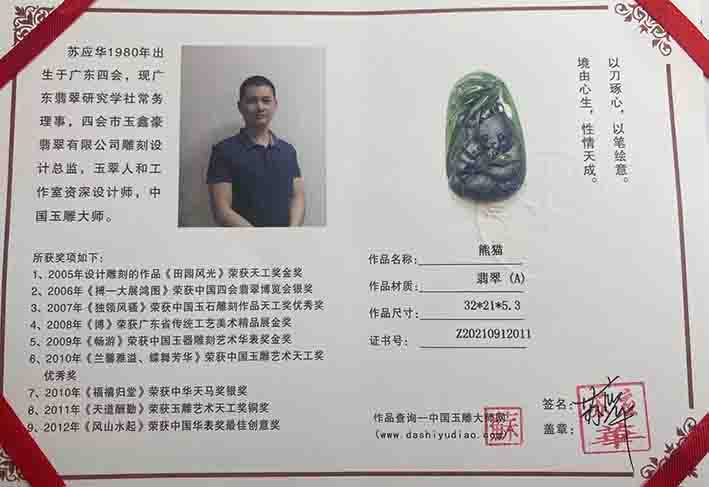 苏应华1980年出
生于广东四会，现广
东翡翠研究学社常务
理事，四会市玉鑫豪
翡翠有限公司雕刻设
计总监，玉翠人和工
作室资深设计师，中
国玉雕大师。
所获奖项如下：
1、2005年设计雕刻的作品《田园风光》荣获天工奖金奖
2、2006年《搏一大展鸿图》荣获中国四会翡翠博览会银奖
3、2007年《独领风骚》荣获中国玉石雕刻作品天工奖优秀奖
4、2008年《博》荣获广东省传统工艺美术精品展金奖
5、2009年《畅游》荣获中国玉器雕刻艺术华表奖金奖
6、2010年《兰馨雅溢、蝶舞芳华》荣获中国玉雕艺术天工奖
优秀奖
7、2010年《福禧归堂》荣获中华天马奖银奖
8、2011年《天道酬勤》荣获玉雕艺术天工奖铜奖
9、2012年《风山水起》荣获中国华表奖最佳创意奖
以刀琢心，以笔绘意。
境由心生，性情天成。
作品名称：熊猫
作品材质：翡翠（A）
作品尺寸：32*21*5.3
证书号：Z20210912011
作品查询—中国玉雕大师网
(www.dashiyudiao.com)
苏
签名：苏应华
盖章：